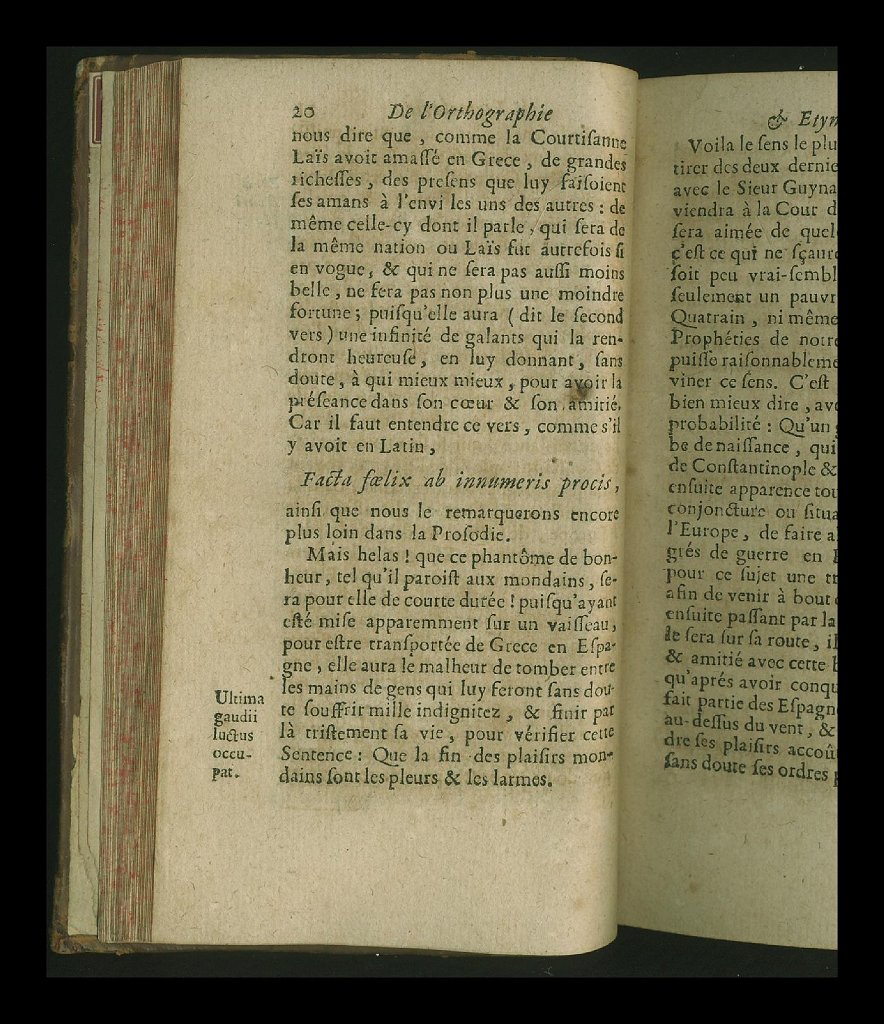 20 De l'Orthographie
nous dire que , comme la Courtiſanne
Laïs avoit amaſſé en Grece , de grandes
richeſſes , des preſens que luy faiſoient
ſes amans à l'envi les uns des autres : de
même celle-cy dont il parle , qui ſera de
la même nation ou Laïs fut autrefois ſi
en vogue , & qui ne ſera pas auſſi moins
belle , ne fera pas non plus une moindre
fortune ; puiſqu'elle aura ( dit le ſecond
vers ) une infinité de galants qui la ren-
dront heureuſe , en luy donnant , ſans
doute , à qui mieux mieux , pour avoir la
préſeance dans ſon cœur & ſon amitié.
Car il faut entendre ce vers , comme s'il
y avoit en Latin ,
Facta fœlix ab innumeris procis ,
ainſi que nous le remarquerons encore
plus loin dans la Proſodie.
Mais helas ! que ce phantôme de bon-
heur , tel qu'il paroiſt aux mondains , ſe-
ra pour elle de courte durée ! puiſqu'ayant
eſté miſe apparemment ſur un vaiſſeau ,
pour eſtre tranſportée de Grece en Eſpa-
gne , elle aura le malheur de tomber entre
les mains de gens qui luy feront ſans dou-
te ſouffrir mille indignitez , & finir par
là triſtement ſa vie , pour vérifier cette
Sentence : Que la fin des plaiſirs mon-
dains ſont les pleurs & les larmes.
Ultima
gaudii
luctus
occu-
pat.
& Etym
Voila le ſens le plu
tirer des deux dernie
avec le Sieur Guyna
viendra à la Cour d
ſera aimée de quel
c'eſt ce qui ne ſçaur
ſoit peu vrai-ſembl
ſeulement un pauvr
Quatrain , ni même
Prophéties de notre
puiſſe raiſonnableme
viner ce ſens. C'eſt
bien mieux dire , av
probabilité : Qu'un
be de naiſſance , qui
de Conſtantinople &
enſuite apparence tou
conjoncture ou ſitua
l'Europe , de faire a
grés de guerre en
pour ce ſujet une tr
afin de venir à bout
enſuite paſſant par la
le ſera ſur ſa route , il
& amitié avec cette
qu'aprés avoir conqu
fait partie des Eſpagn
au-deſſus du vent , &
dre ſes plaiſirs accoû
ſans doute ſes ordres